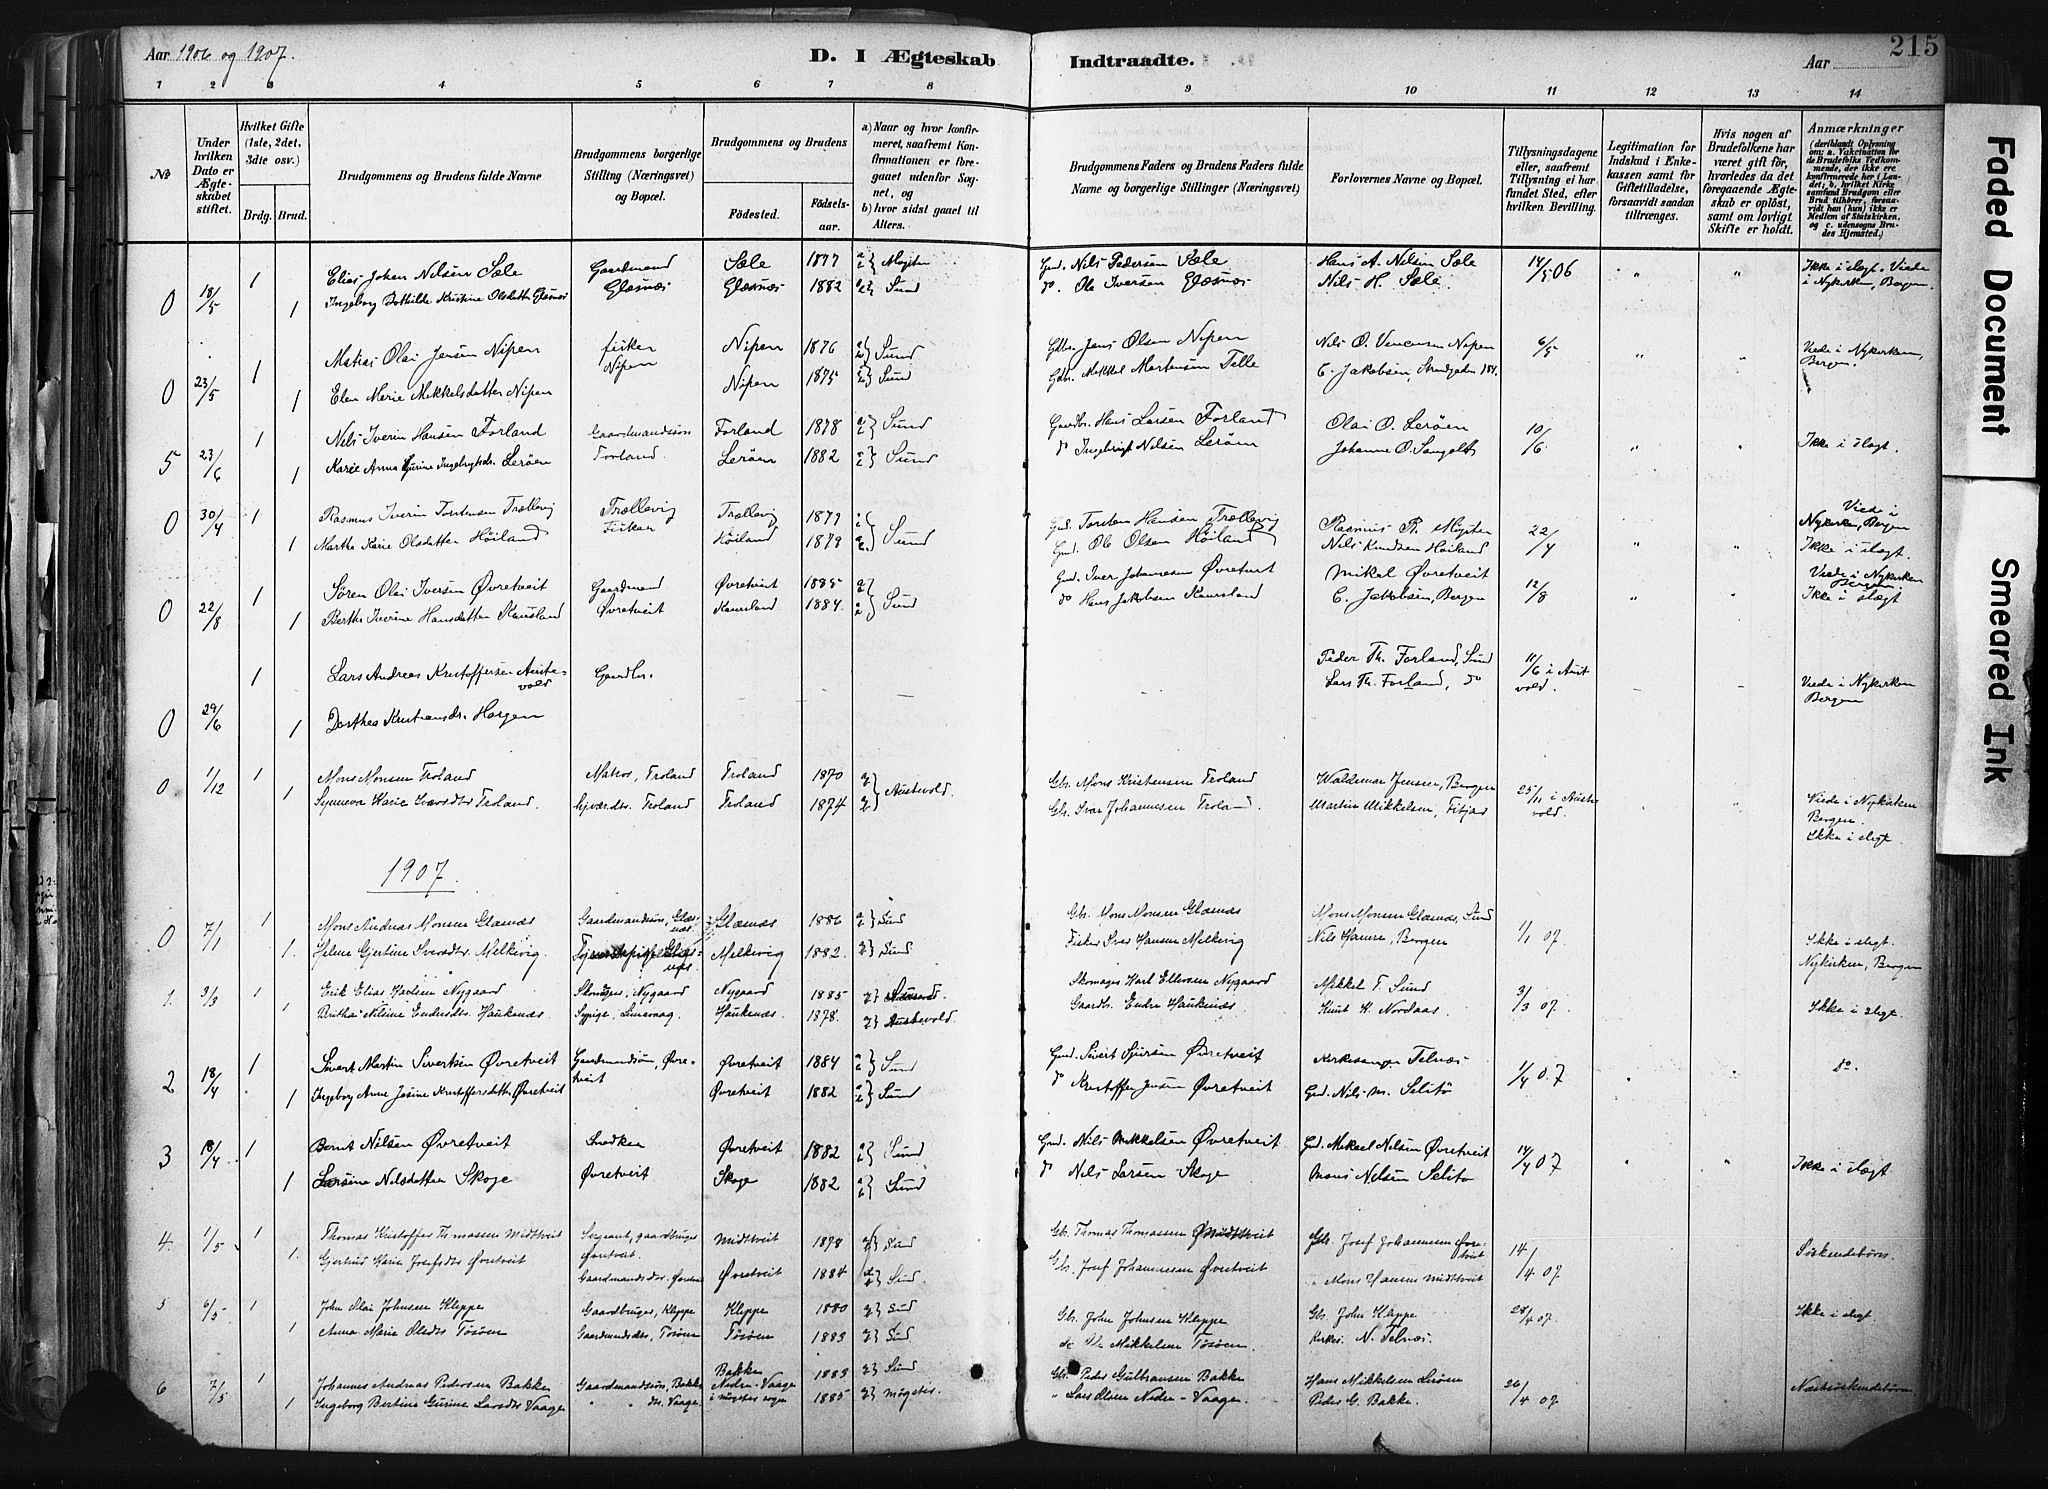 Aar 1906 og 1907.
D. I Ægteskab Indtraadte.
Aar
215
1 2 3 4 5 6 7 8 9 10 11 12 13 14
No
Under hvilken Dato er Ægteskabet stiftet.
Hvilket Gifte (1ste, 2det, 3die osv.)
Brdg. Brud.
Brudgommens og Brudens fulde Navne
Brudgommens borgerlige Stilling (Næringsvei) og Bopæl.
Brudgommens og Brudens
Fødested.
Fødselsaar.
a) Naar og hvor konfirmeret, saafremt Konfirmationen er foregaaet udenfor Sognet, og
b) hvor sidst gaaet til Alters.
Brudgommens Faders og Brudens Faders fulde Navne og borgerlige Stillinger (Næringsvei)
Forlovernes Navne og Bopæl.
Tillysningsdagene eller, saafremt Tillysning ei har fundet Sted, efter hvilken Bevilling.
Legitimation for Indskud i Enkekassen samt for Giftetilladelse, forsaavidt saadan tiltrænges.
Hvis nogen af Brudefolkene har været gift før, hvorledes da det foregaaende Ægteskab er opløst, samt om lovligt Skifte er holdt.
Anmærkninger (deriblandt Oplysning om: a. Vakcination for de Brudefolks Vedkommende, der ikke ere konfirmerede her i Landet; b. hvilket Kirkesamfund Brudgom eller Brud tilhører, forsaavidt han (hun) ikke er Medlem af Statskirken, og c. udensogns Brudes Hjemsted.)
0 18/5 1 Elias Johan Nilsen Sæle Gaardmand Sæle 1877 Møgster Gmd. Nils Pedersen Sæle Hans A. Nilsen Sæle 14/5 06 Ikke i slægt. Viede
1 Ingeborg Bothilde Kristine Olsdatter Glæsnæs Glæsnæs Glæsnæs 1882 Sund do Ole Iversen Glæsnæs Nils H. Sæle. i Nykirken, Bergen.
0 23/5 1 Matias Olai Jensen Nipen fisker Nipen Nipen 1876 Sund Gdbr. Jens Olsen Nipen Nils O. Vencensen Nipen 6/5 Viede i Nykirken, Bergen.
1 Elen Marie Mikkelsdatter Nipen Nipen 1875 Sund Gdbr. Mikkel Mortensen Telle C. Jakobsen, Strandgaden 184.
5 23/6 1 Nils Iverin Hansen Forland Gaardmandssøn Forland 1878 Sund Gaardbr. Hans Larsen Forland Olai O. Lerøen 10/6 Ikke i slægt.
1 Karie Anna Gurine Ingebrigtsdr. Lerøen Forland. Lerøen 1882 Sund do Ingebrigt Nilsen Lerøen Johanne O. Sangolt
0 30/4 1 Rasmus Iverin Torstensen Trællevig Trællevig Trællevig 1879 Sund Gmd. Torsten Hansen Trællevig Rasmus R. Møgster 22/4 Viede i Nykirken, Bergen
1 Marthe Karie Olsdatter Høiland Fisker Høiland 1879 Gmd. Ole Olsen Høiland Nils Knudsen Høiland Ikke i slægt.
0 22/8 1 Søren Olai Iversen Øvretveit Gaardmand Øvretveit 1885 Sund Gmd. Iver Johannesen Øvretveit Mikal Øvretveit 12/8 Viede i Nykirken Bergen
1 Berthe Iverine Hansdatter Kausland Øvretveit Kausland 1884. do Hans Jakobsen Kausland C. Jakobsen, Bergen Ikke i slægt
0 29/6 1 Lars Andreas Kristoffersen Austevold Gaardbr. Peder Th. Forland, Sund 11/6 i Austvold. Viede i Nykirken Bergen
1 Dorthea Kristiansdr. Horgen Lars Th. Forland, do
0 1/12 1 Mons Monsen Troland Matros, Troland Troland 1870 Austevold. Gbr. Mons Kristensen Troland Waldemar Jensen, Bergen 25/11 i Austevold. Viede i Nykirken Bergen.
1 Synneva Karie Ivarsdtr Troland. Troland Troland 1874 Gbr. Ivar Johannesen Troland. Martin Mikkelsen, Fitjar Ikke i slegt
1907.
0 7/1 1 Mons Andreas Monsen Glæsnæs Gaardmandssøn, Glæsnæs Glæsnæs 1886 Sund Gbr. Mons Monsen Glæsnæs Mons Monsen Glæsnæs, Sund 1/1 07. Ikke i slegt.
1. Helene Gjertine Ivarsdtr. Melkevig. Melkevig 1882. Sund Fisker Ivar Hansen Melkevig Nils Hamre, Bergen Nykirken, Bergen
1. 3/3 1 Erik Elias Karlsen Nygaard Skomager, Nygaard Nygaard 1885 Skomager Karl Ellevsen Nygaard Mikkel T. Sund 3/3 07. Ikke i slegt.
1 Britha Nilsine Endresdtr. Haukenæs. Sypige, Haukenæs 1878. Austevold. Gaardbr. Endre Haukenæs Knut K. Nordaas
2 18/4 1 Sivert Martin Sivertsen Øvretveit Gaardmandssøn, Øvretveit Øvretveit 1884 Sund Gmd. Sivert Sjursen Øvretveit Kirkesanger Telnæs 1/4 07 do.
1 Ingeborg Anne Jasine Kristoffersdatter Øvretveit Øvretveit 1882 Sund do Kristoffer Jensen Øvretveit Gmd. Nils M. Selstø
3 18/4 1 Bernt Nilsen Øvretveit Snedker Øvretveit 1882 Sund Gmd. Nils Mikkelsen Øvretveit Gmd. Mikael Nilsen Øvretveit 14/4 07 Ikke i slægt
1 Larsine Nilsdatter Skoge Øvretveit Skoge 1882 Sund do Nils Larsen Skoge Mons Nilsen Selstø
4. 1/5 1 Thomas Kristoffer Thomassen Midttveit Sergeant, gaardbruger Øvretveit. Midttveit 1878 Sund Gbr. Thomas Thomassen Midttveit Gbr. Josef Johannesen Øvretveit 14/4 07. Søskendebørn.
1. Gjertrud Karie Josefsdtr Øvretveit Gaardmandsdtr. Øvretveit Øvretveit 1884 Sund. Gbr. Josef Johannesen Øvretveit Mons Hansen Midttveit
5 6/5 1 John Olai Johnsen Kleppe Gaardbruger, Kleppe Kleppe 1880 Sund Gbr. John Johnsen Kleppe Gbr. John Kleppe 28/4 07. Ikke i slegt.
1 Anna Marie Olsdtr Tøsøen Gaardmandsdtr, Tøsøen Tøsøen 1883 Sund do Ole Mikkelsen Tøsøen. Kirkes. N. Telnæs.
6 7/5 1 Johannes Andreas Pedersen Bakke Gaardmandssøn, Bakke Bakke 1883 Sund Gbr. Peder Gulthansen Bakke Hans Mikkelsen Lerøen 26/4 07. Næstsøskendebørn
1 Ingeborg Bertine Gurine Larsdtr Vaage " " dtr. Vaage. Nedre-Vaage i Møgster sogn 1885 Møgster. " Lars Olsen Nedre-Vaage. Peder G. Bakke.
Faded Document
Smeared Ink